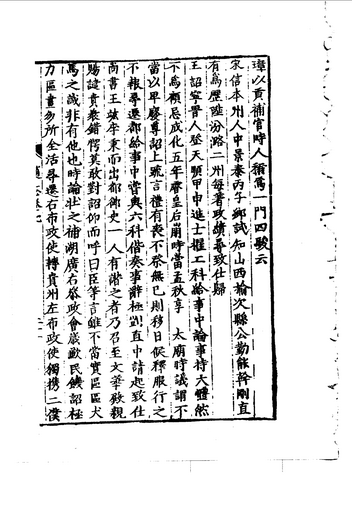 璋以貢補官時人稱爲一門四駿云
宋信本州人中景泰丙子鄉試知山西榆次縣公勤能幹剛直
有爲歷陞汾路二州每著政績尋致仕歸
王詔寧晉人登天順甲申進士擢工科給事中論事持大體然
不爲顧忌成化五年 皇后崩時當孟秋享 太廟時議謂不
當以卑廢尊詔上疏言禮有喪不祭無已則移日俟釋服行之
不報尋遷都給事中嘗與六科偕奏事辭極剴直中請起致仕
尚書王竑李秉而出都御史一人有譖之者乃召至文華殿親
賜譴責衆錯愕莫敢對詔仰而呼曰臣等言雖不當實區區犬
馬之誠非有他也時論壯之補湖廣右叅政會歲歉民饑詔極
力區畫多所全活尋遷右布政使轉貴州左布政使獨攜二僕